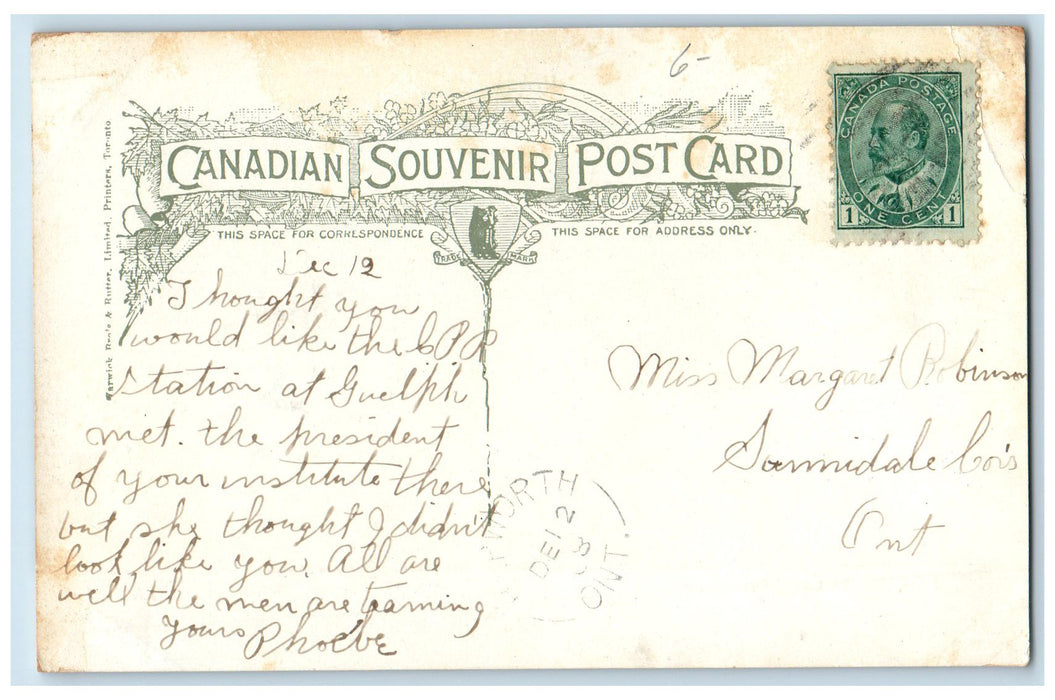 6-
CANADIAN SOUVENIR POST CARD
THIS SPACE FOR CORRESPONDENCE
THIS SPACE FOR ADDRESS ONLY.
TRADE MARK
CANADA POSTAGE
1 ONE CENT 1
& Rutter, Limited, Printers, Toronto.
Dec 12
I hought you
would like the CPR
station at Guelph
met. the president
of your institute there
but she thought I didn't
look like you. All are
well the men are teaming
yours Phoebe
Miss Margaret Robinson
Sunnidale Cor's
Ont
WORTH
DE 12
ONT.